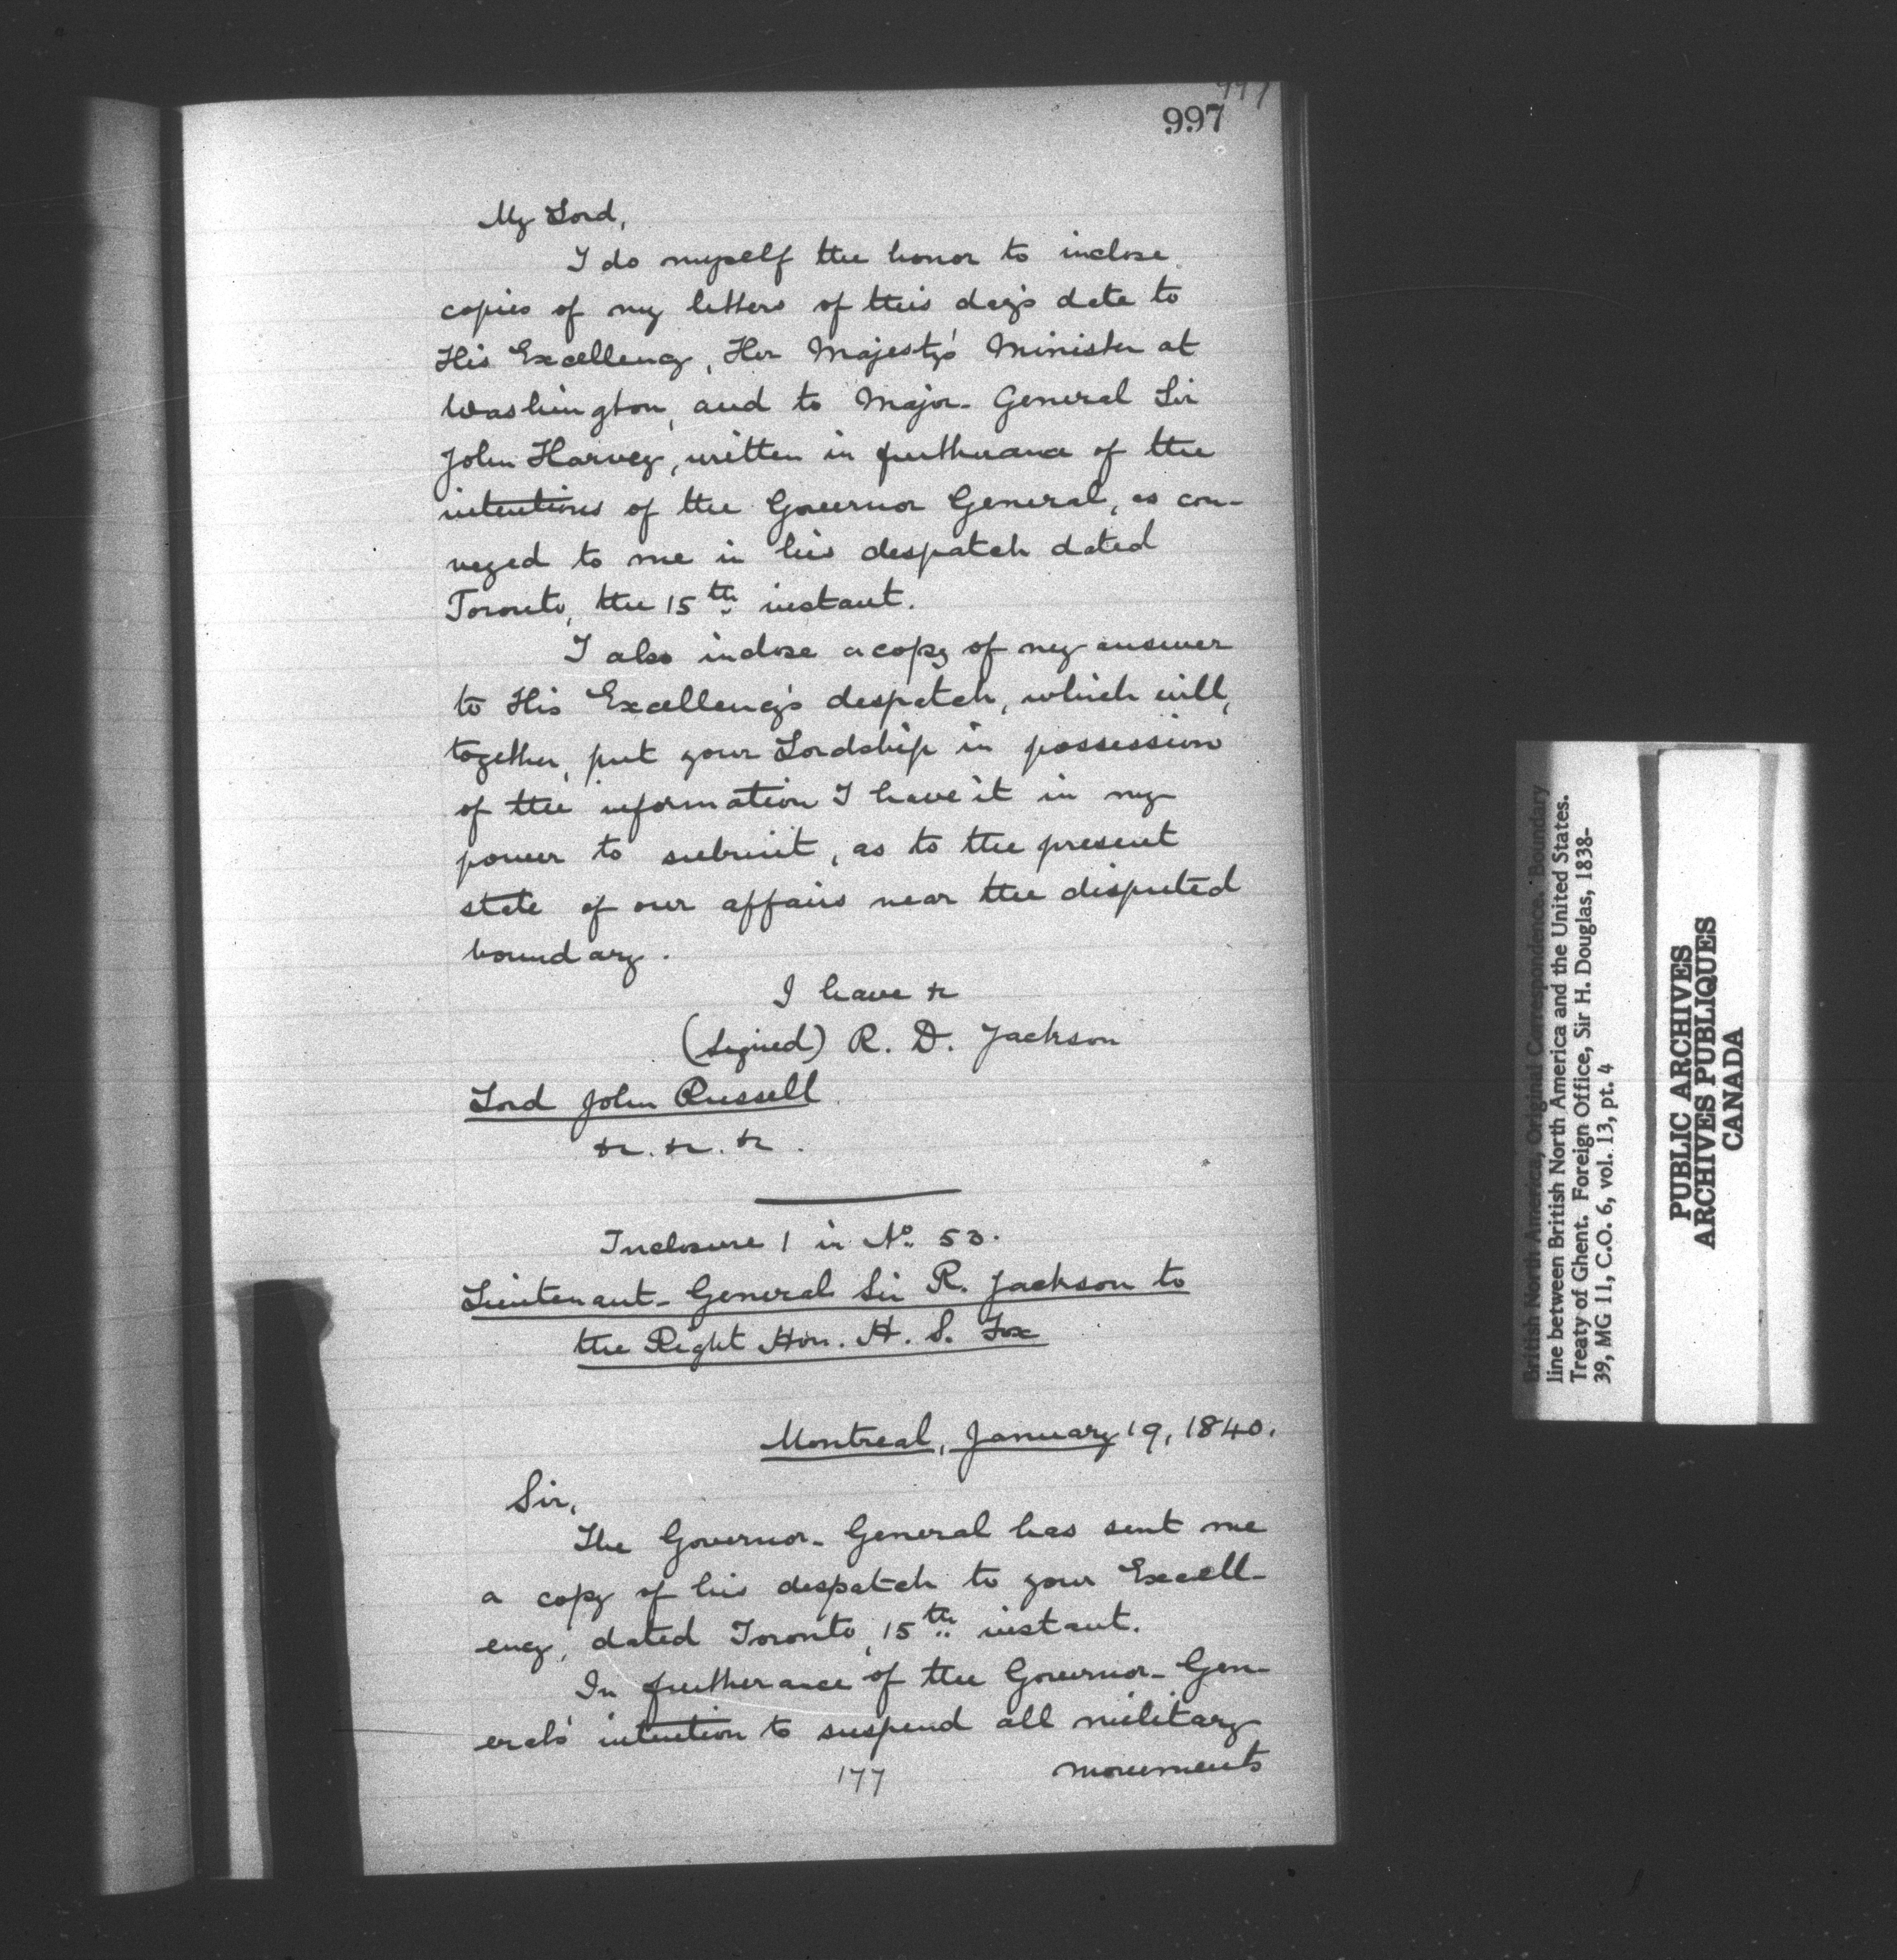 997
997
My Lord,
I do myself the honor to inclose
copies of my letters of this day's date to
His Excellency, Her Majesty's Minister at
Washington, and to Major-General Sir
John Harvey, written in furtherance of the
intentions of the Governor General, as con-
veyed to me in his despatch dated
Toronto, the 15th instant.
I also inclose a copy of my answer
to His Excellency's despatch, which will,
together, put your Lordship in possession
of the information I have it in my
power to submit, as to the present
state of our affairs near the disputed
boundary.
I have &c
(signed) R. D. Jackson
Lord John Russell
&c. &c. &c.
Inclosure 1 in No. 53.
Lieutenant-General Sir R. Jackson to
the Right Hon. H. S. Fox
Montreal, January 19, 1840.
Sir,
The Governor-General has sent me
a copy of his despatch to your Excell-
ency, dated Toronto, 15th instant.
In furtherance of the Governor-Gen-
eral's intention to suspend all military
177 movements
British North America, Original Correspondence. Boundary
line between British North America and the United States.
Treaty of Ghent. Foreign Office, Sir H. Douglas, 1838-
39, MG 11, C.O. 6, vol. 13, pt. 4
PUBLIC ARCHIVES
ARCHIVES PUBLIQUES
CANADA